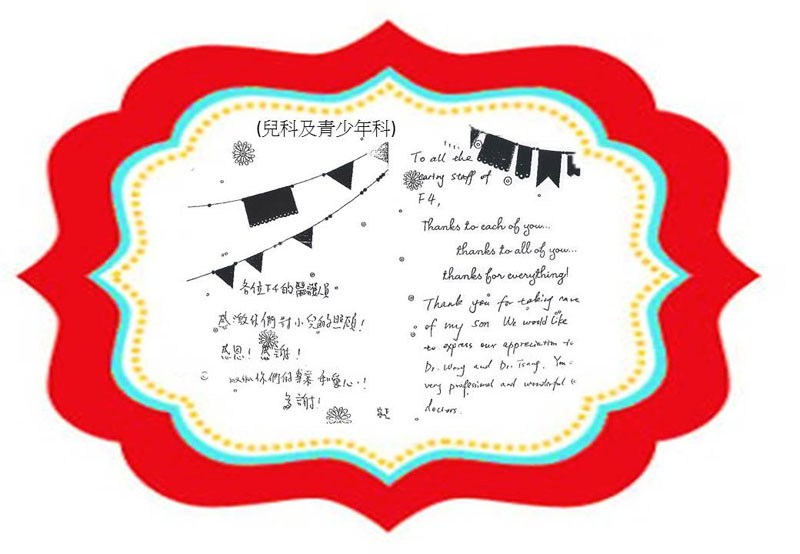 (兒科及青少年科)
各位F4的醫護人員
感激你們對小兒的照顧!
感恩! 感謝!
你們的專業和愛心!
多謝!
To all the
caring staff of
F4,
Thanks to each of you...
thanks to all of you...
thanks for everything!
Thank you for taking care
of my son We would like
to express our appreciation to
Dr. Wong and Dr. Tsang. You
very professional and wonderful
doctors.